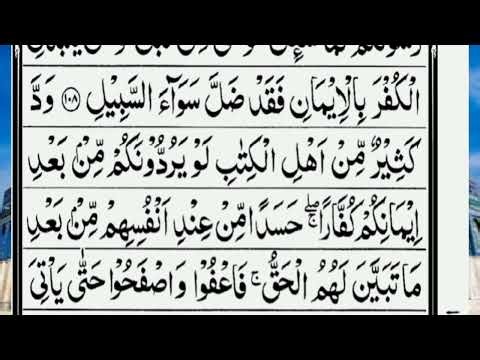 الْكُفْرَ بِالْاِيْمَانِ فَقَدْ ضَلَّ سَوَآءَ السَّبِيْلِ ۝۱۰۸ وَدَّ
كَثِيْرٌ مِّنْ اَهْلِ الْكِتٰبِ لَوْ يَرُدُّوْنَكُمْ مِّنْۢ بَعْدِ
اِيْمَانِكُمْ كُفَّارًا ۚۖ حَسَدًا مِّنْ عِنْدِ اَنْفُسِهِمْ مِّنْۢ بَعْدِ
مَا تَبَيَّنَ لَهُمُ الْحَقُّ ۚ فَاعْفُوْا وَاصْفَحُوْا حَتّٰى يَاْتِيَ